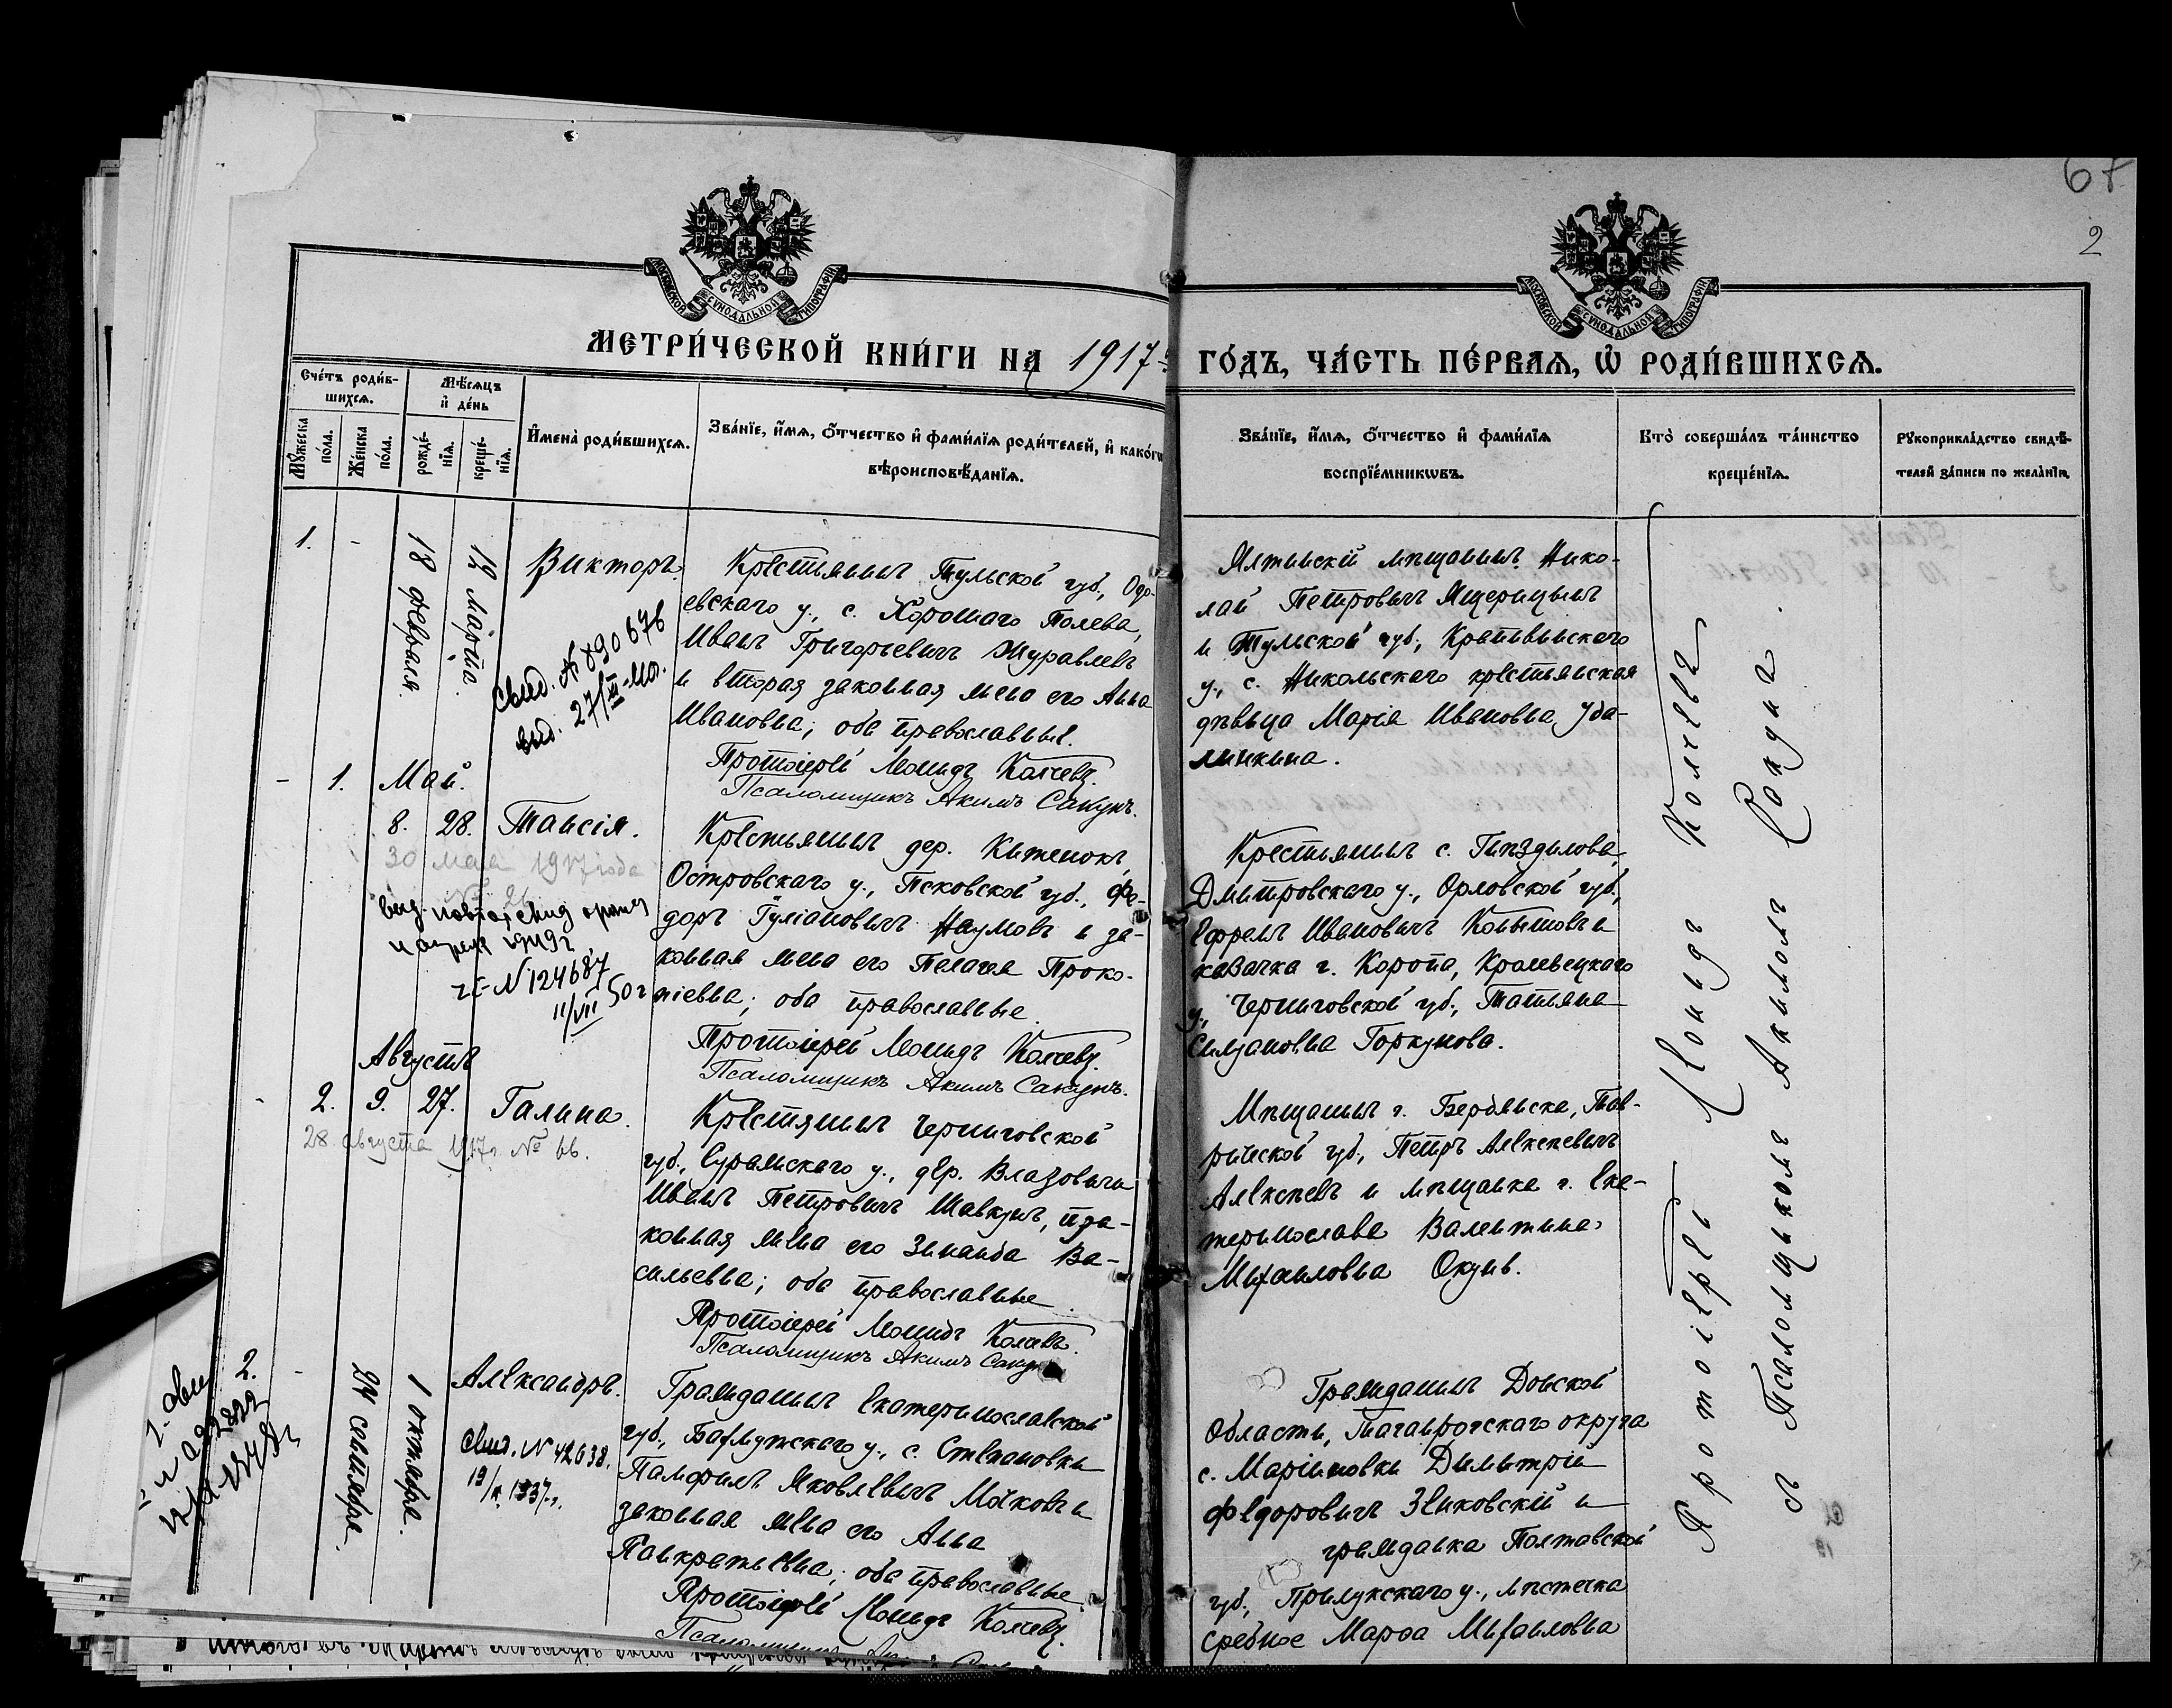 67
2
МОСКОВСКОЙ СѴНОДАЛЬНОЙ ТИПОГРАФІИ
МОСКОВСКОЙ СѴНОДАЛЬНОЙ ТИПОГРАФІИ
МЕТРИ́ЧЕСКОЙ КНИ́ГИ НА 1917-й ГО́ДЪ, ЧА́СТЬ ПЕ́РВАѦ, Ѡ҆ РОДИ́ВШИХСѦ.
Сче́тъ роди́в-
шихсѧ.
Мѣ́сѧцъ
и҆ де́нь
Мꙋ́жеска
по́ла.
Же́нска
по́ла.
рожде́-
нїѧ.
креще́-
нїѧ.
И҆мена̀ роди́вшихсѧ.
Зва́нїе, и҆́мѧ, ѻ҆́тчество и҆ фами́лїѧ роди́телей, и҆ како́гѡ
вѣроисповѣ́данїѧ.
Зва́нїе, и҆́мѧ, ѻ҆́тчество и҆ фами́лїѧ
воспрїе́мникѡвъ.
Кто̀ соверша́лъ та́инство
креще́нїѧ.
Рꙋкоприкла́дство свидѣ́-
телей за́писи по жела́нїю.
1.
-
18 февраля.
12 марта.
Викторъ.
Свид. № 890676
выд. 27/III-
Крестьянинъ Тульской губ., Одо-
евскаго у., с. Хорошаго Полева,
Иванъ Григорьевичъ Журавлевъ
и вторая законная жена его Анна
Ивановна; оба православные.
Протоіерей Леонидъ Колчевъ.
Псаломщикъ Акимъ Сакунъ.
Ялтинскій мѣщанинъ Нико-
лай Петровичъ Ящерицынъ
и Тульской губ., Крапивинскаго
у., с. Никольскаго крестьянская
дѣвица Марія Ивановна Уда-
линкина.
-
1.
Май.
8.
28.
Таисія.
30 мая 1917 года
выд. повтор. свид
апреля 1949 г
№ 124687
11/VII 50 г
Крестьянинъ дер. Китенокъ,
Островскаго у., Псковской губ., Фе-
доръ Іуліановичъ Наумовъ и за-
конная жена его Пелагея Проко-
піевна; оба православные.
Протоіерей Леонидъ Колчевъ.
Псаломщикъ Акимъ Сакунъ.
Крестьянинъ с. Гнѣздилова,
Дмитровскаго у., Орловской губ.,
Ефремъ Ивановичъ Копытовъ и
казачка г. Коропа, Кролевецкаго
у., Черниговской губ., Татьяна
Силуановна Горкунова.
Августъ
-
2.
9.
27.
Галина.
28 августа 1917 г. № 66.
Крестянинъ Черниговской
губ., Суражскаго у., дер. Влазовичи
Иванъ Петровичъ Шавкунъ, и за-
конная жена его Зинаида Ва-
сильевна; оба православные.
Протоіерей Леонидъ Колчевъ.
Псаломщикъ Акимъ Сакунъ
Мѣщанинъ г. Бердянска, Тав-
рической губ., Петръ Алексѣевичъ
Алексѣевъ и мѣщанка г. Ека-
теринослава Валентина
Михаиловна Окунь.
2.
-
24 сентября.
1 октября.
Александръ.
свид. № 42638.
1937 г.
Гражданинъ Екатеринославской
губ., Бахмутскаго у., с. Степановки
Памфилъ Яковлевичъ Мачковъ и
законная жена его Анна
Панкратьевна; оба православные.
Протоіерей Леонидъ Колчевъ.
Гражданинъ Донской
Области, Таганрогскаго округа
с. Маріиновки Димитрій
Федоровичъ Зенковскій и
гражданка Полтавской
губ., Прилукскаго у., мѣстечка
Сребное Марѳа Михаиловна
Протоіерей Леонидъ Колчевъ
съ Псаломщикомъ Акимомъ Сакуна.